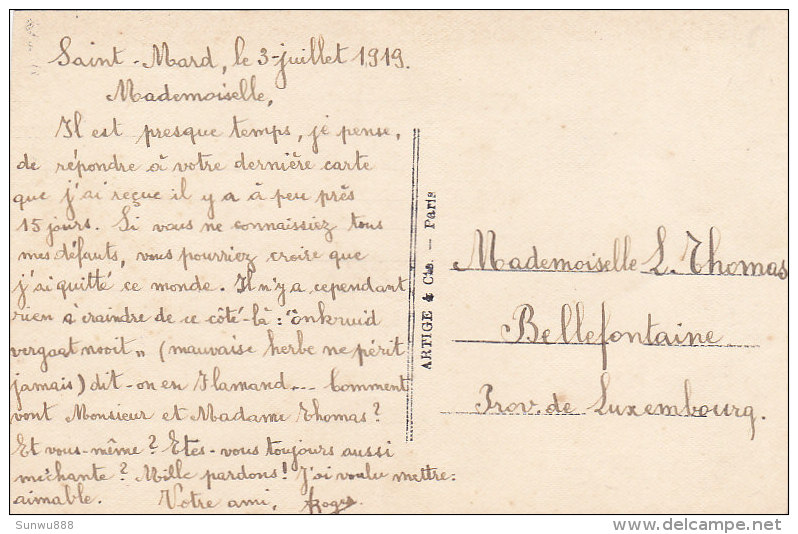 Saint-Mard, le 3-juillet 1919.
Mademoiselle,
Il est presque temps, je pense,
de répondre à votre dernière carte
que j'ai reçue il y a à peu près
15 jours. Si vous ne connaissiez tous
mes défauts, vous pourriez croire que
j'ai quitté ce monde. Il n'y a cependant
rien à craindre de ce côté-là : "onkruid
vergaat nooit" (mauvaise herbe ne périt
jamais) dit-on en Flamand... Comment
vont Monsieur et Madame Thomas?
Et vous-même? Etes-vous toujours aussi
méchante? Mille pardons! J'ai voulu mettre:
aimable. Votre ami, Roger
ARTIGE & Cie. — Paris
Mademoiselle L. Thomas
Bellefontaine
Prov. de Luxembourg.
Sunwu888
delcampe.net